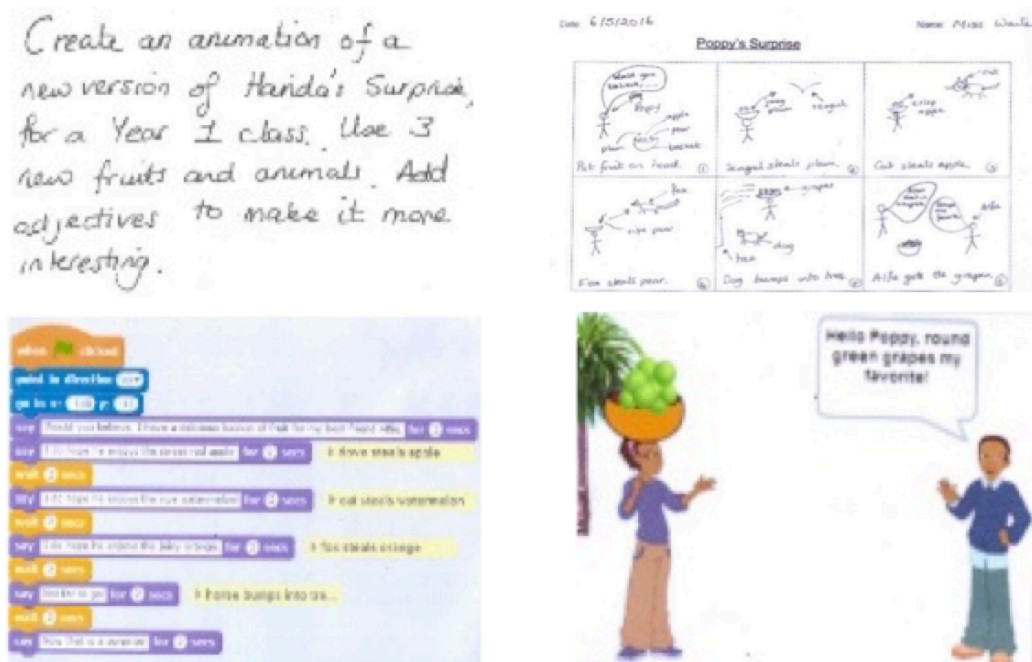 Create an animation of a
new version of Handa's Surprise,
for a Year 1 class. Use 3
new fruits and animals. Add
adjectives to make it more
interesting.
Date 6/5/2016 Name Miss
Poppy's Surprise
Would you believe....
Poppy
apple
plum
pear
basket
Put fruit on head. 1
plum
seagull
Seagul steals plum.
cat
crisp apple
Cat steals apple. 3
fox
ripe pear
Fox steals pear.
grapes
dog
tree
Dog bumps into tree.
Alfie
Alfie gets the grapes.
when clicked
point in direction
go to x: y:
say Would you believe, I have a delicious basket of fruit for my best friend for 2 secs
say I do hope he enjoys the sweet red apple for 2 secs dove steals apple
wait 2 secs
say I do hope he enjoys the watermelon for 2 secs cat steals watermelon
wait 2 secs
say I do hope he enjoys the juicy orange for 2 secs fox steals orange
wait 2 secs
say to go for 2 secs horse bumps into tre...
wait 2 secs
say Now that is a surprise for 2 secs
Hello Poppy, round
green grapes my
favorite!